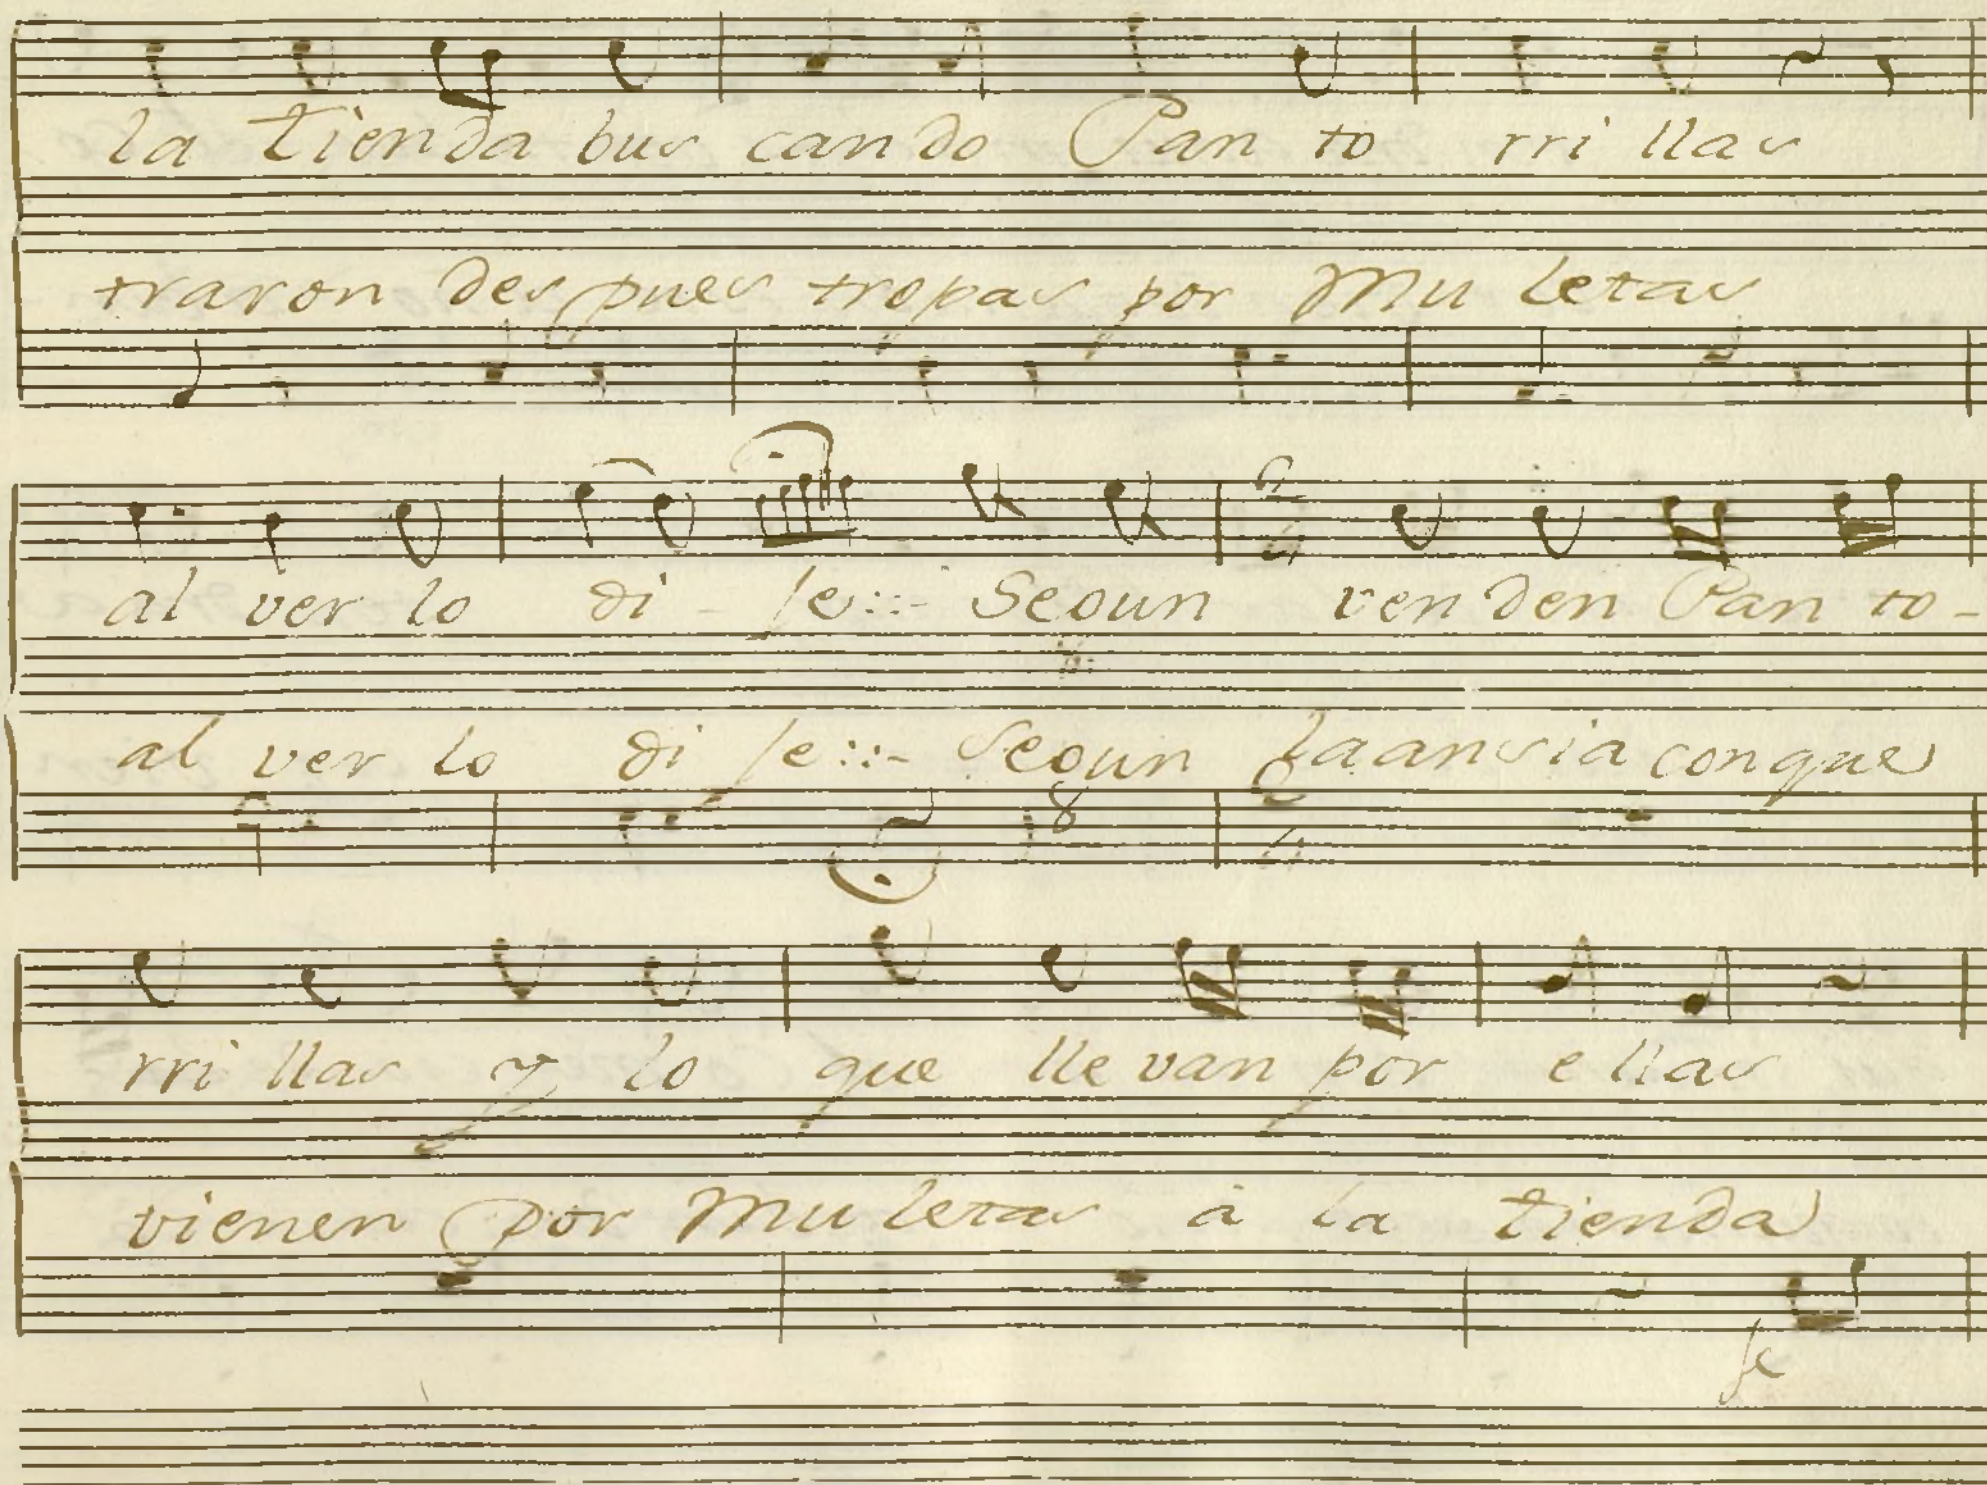 la tienda bus cando Pan to rri llas
traron des pues tropas por Mu letas
al ver lo di - je::- Segun ven den Pan to -
al ver lo di je::- Segun la ansia conque
rri llas y lo que lle van por e llas
vienen por Mu letas à la tienda